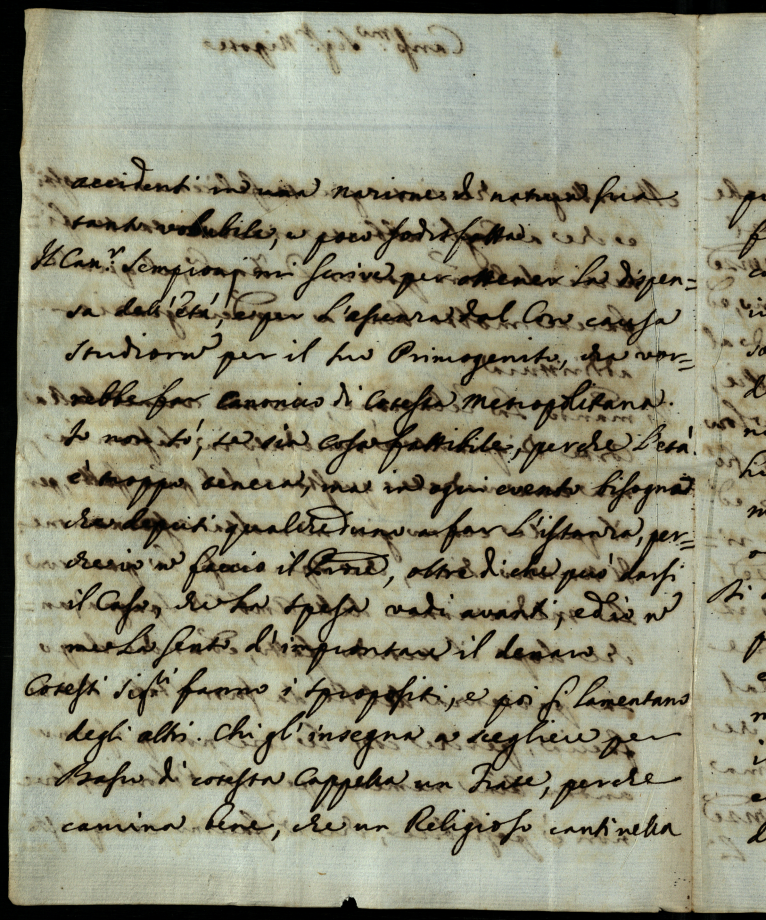 accidenti in una nazione di natura sua
tanto volubile, e poco sodisfatta
Il Can.r Sempioni mi scrive per ottener la dispen=
sa dell'età, e per l'assenza dal Coro causa
studiorum per il suo Primogenito, che vor=
rebbe far canonico di cotesta Metropolitana.
Io non sò, se sia cosa fattibile, perche l'età
è troppo tenera, ma in ogni evento bisogna
che deputi qualched'uno a far l'istanza, per=
che io n faccio il, oltre di che può darsi
il Caso, che la spesa vadi avanti, ed io n
me la sento d'improntare il denaro
Cotesti Sig.ri fanno i spropositi, e poi si lamentano
degli altri. Chi gl'insegna a scegliere per
Basso di cotesta Cappella un Frate, perche
camina bene, che un Religioso canti nella